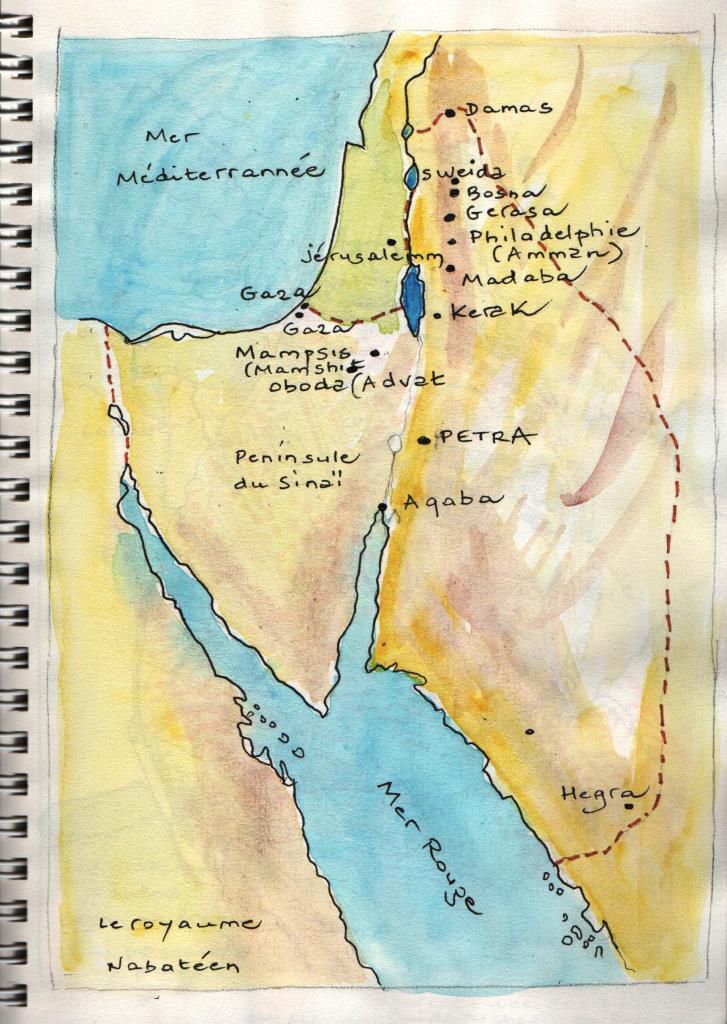 Damas
Mer
Méditerrannée
Sweida
Bosna
Gerasa
Philadelphie
(Amman)
Jérusalemm
Madaba
Gaza
Kerak
Gaza
Mampsis
(Mamshit
oboda (Advat
PETRA
Peninsule
du Sinaï
Aqaba
Hegra
Mer Rouge
Le royaume
Nabatéen